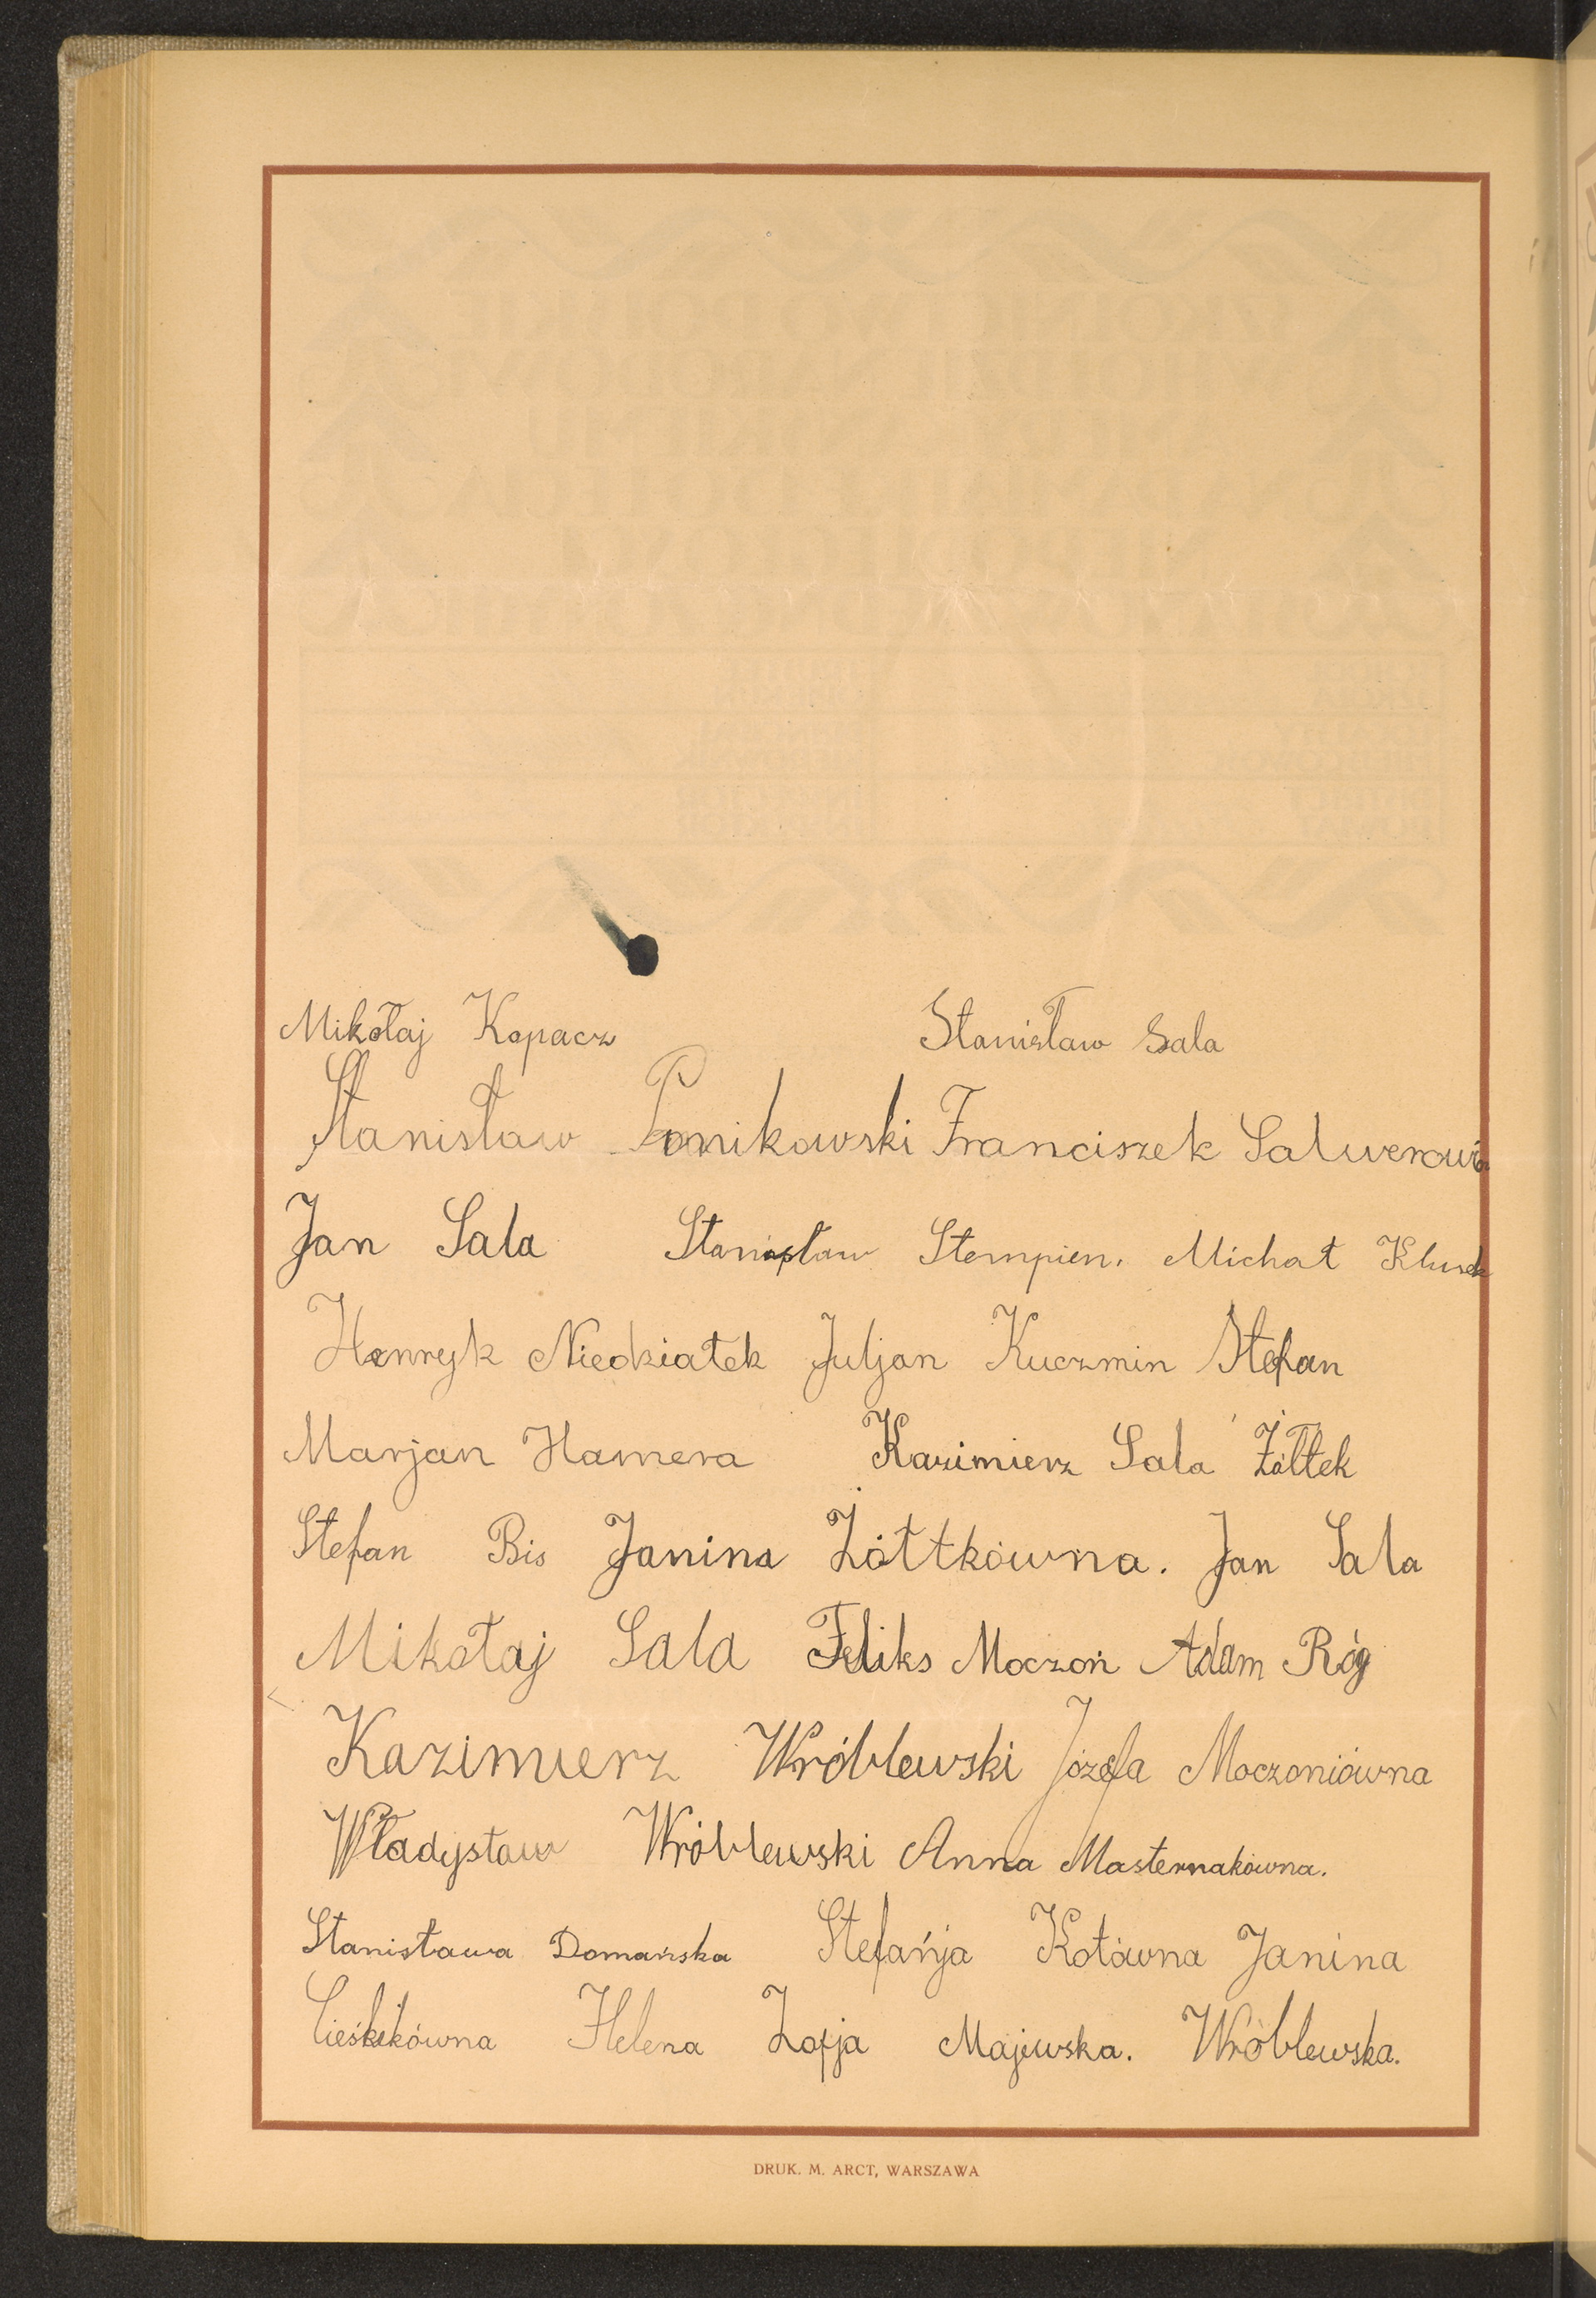 Mikołaj Kopacz Stanisław Sala
Stanisław Ponikowski Franciszek Salwerowi
Jan Sala Stanisław Stempien. Michał Klusek
Henryk Niedziałek Juljan Kuczmin Stefan
Marjan Hamera Kazimierz Sala Żółtek
Stefan Bis Janina Żółtkówna. Jan Sala
Mikołaj Sala Feliks Moczoń Adam Róg
Kazimierz Wróblewski Józefa Moczoniówna
Władysław Wróblewski Anna Masternakówna.
Stanisława Domańska Stefańja Kotówna Janina
Cieślikówna Helena Zofja Majewska. Wróblewska.
DRUK. M. ARCT, WARSZAWA